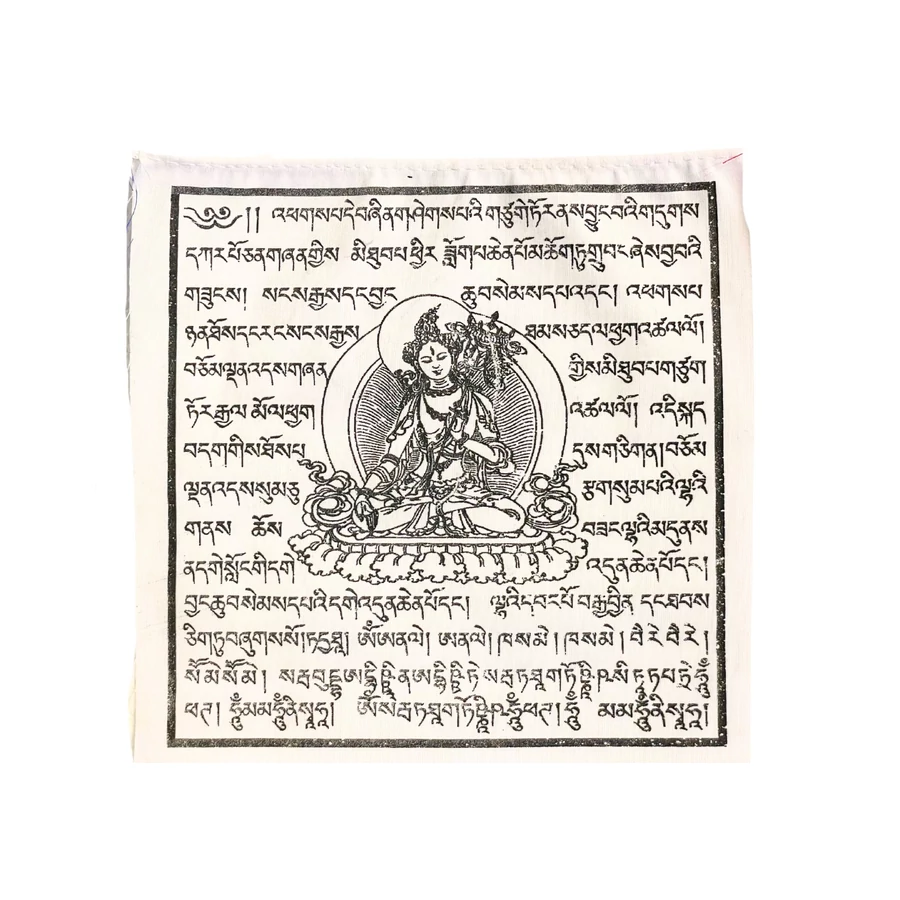 ༄༅།། འཕགས་པ་དེ་བཞིན་གཤེགས་པའི་གཙུག་ཏོར་ནས་བྱུང་བའི་གདུགས
དཀར་པོ་ཅན་གཞན་གྱིས མི་ཐུབ་པ་ཕྱིར་ ཟློག་པ་ཆེན་པོ་མཆོག་ཏུ་གྲུབ་པ་ཞེས་བྱ་བའི
གཟུངས། སངས་རྒྱས་དང་བྱང ཆུབ་སེམས་དཔའ་དང་། འཕགས་པ
ཉན་ཐོས་དང་རང་སངས་རྒྱས ཐམས་ཅད་ལ་ཕྱག་འཚལ་ལོ།
བཅོམ་ལྡན་འདས་གཞན གྱིས་མི་ཐུབ་པ་གཙུག
ཏོར་རྒྱལ་མོ་ལ་ཕྱག འཚལ་ལོ། འདི་སྐད
བདག་གིས་ཐོས་པ དུས་གཅིག་ན། བཅོམ
ལྡན་འདས་སུམ་ཅུ རྩ་གསུམ་པའི་ལྷའི
གནས ཆོས བཟང་ལྷའི་མདུན་ས
ན་དགེ་སློང་གི་དགེ འདུན་ཆེན་པོ་དང་།
བྱང་ཆུབ་སེམས་དཔའི་དགེ་འདུན་ཆེན་པོ་དང་། ལྷའི་དབང་པོ་བརྒྱ་བྱིན་ དང་ཐབས
ཅིག་ཏུ་བཞུགས་སོ། ཏདྱ་ཐཱ། ཨོཾ་ཨ་ན་ལེ། ཨ་ན་ལེ། ཁ་ས་མེ། ཁ་ས་མེ། བཻ་རེ་བཻ་རེ།
སོཽ་མེ་སོཽ་མེ།
ཕཊ། ཧཱུྃ་མ་མ་ཧཱུྃ་ནི་སྭཱ་ཧཱ།